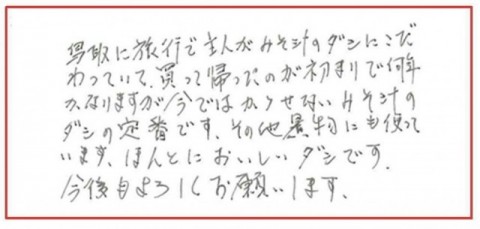 鳥取に旅行で主人がみそ汁のダシにこだ
わっていて、買って帰ったのが初まりで何年
か、なりますが今ではかかせないみそ汁の
ダシの定番です、その他煮物にも使って
います、ほんとにおいしいダシです、
今後もよろしくお願いします、